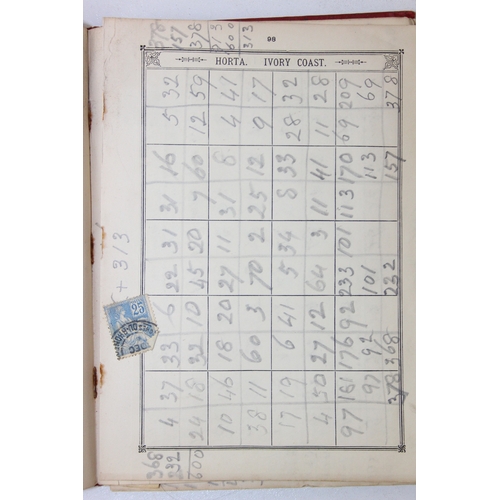 98
HORTA. IVORY COAST.
4 37 33 6 22 31 31 16 5 32
24 18 32 10 45 20 7 60 12 59
10 46 18 20 27 11 31 8 4 41
38 11 60 3 70 2 25 12 9 17
17 19 6 41 5 34 8 33 28 32
4 50 27 12 64 3 11 41 11 28
97 181 176 92 233 101 113 170 69 209
97 92 101 113 69
378 368 232 157 378
+ 313
368
232
600
378
157
378
913
600
313
25
DEC